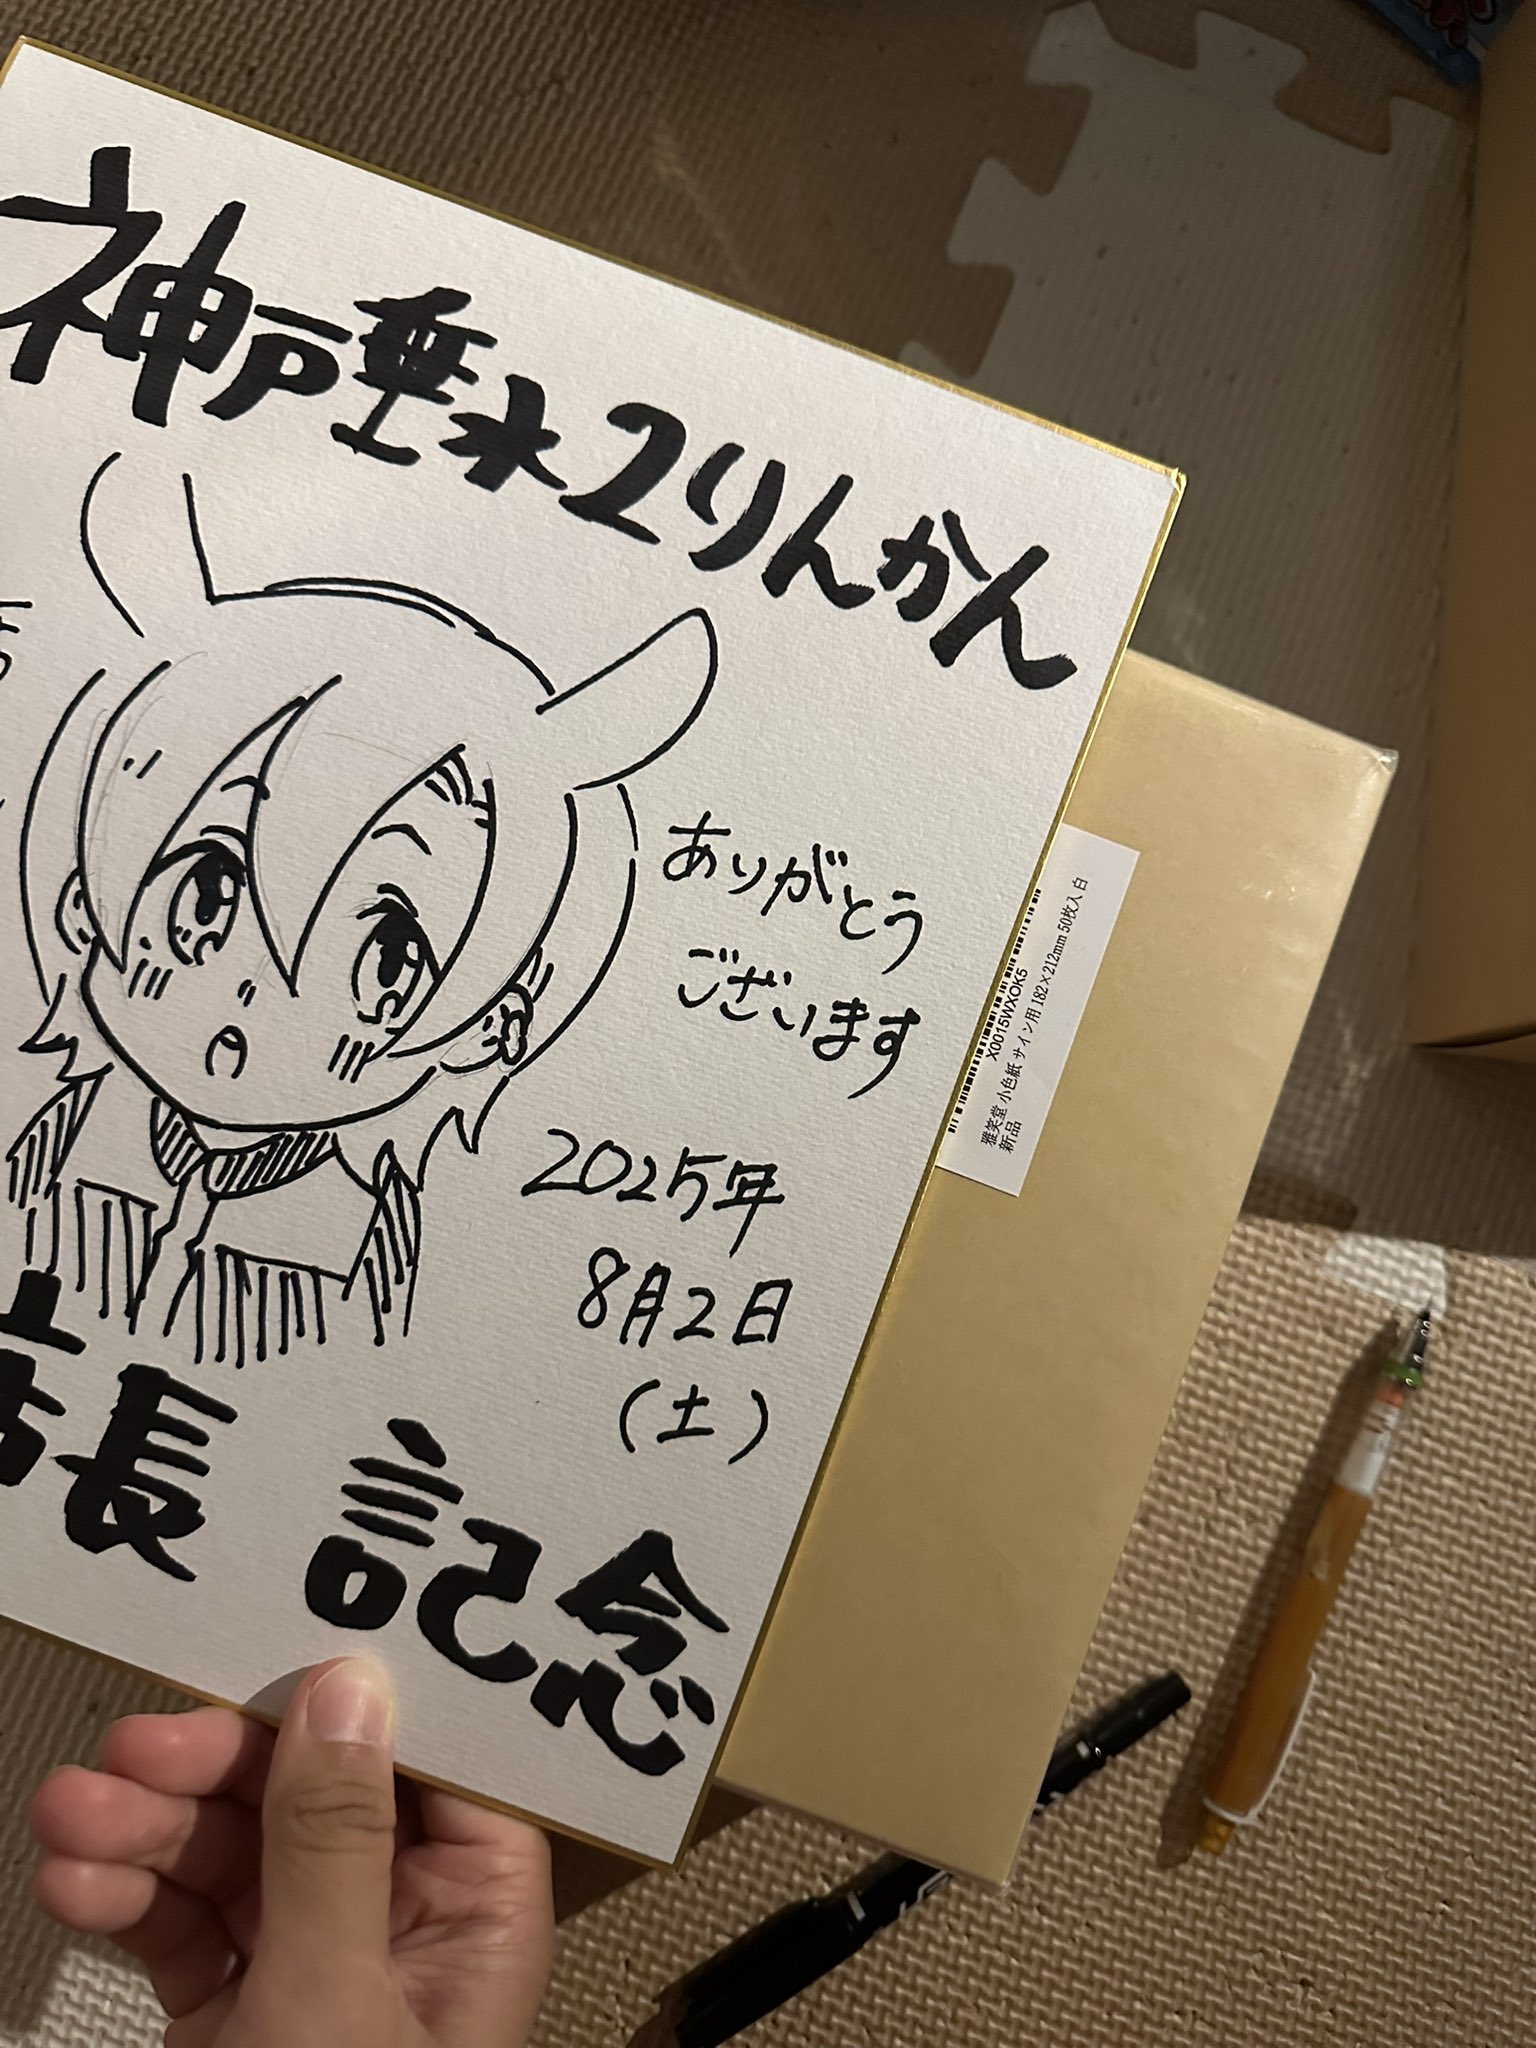 神戸垂水2りんかん
ありがとう
ございます
2025年
8月2日
(土)
店長 記念
X0015WXOK5
雅笑堂 小色紙 サイン用 182×212mm 50枚入 白
新品